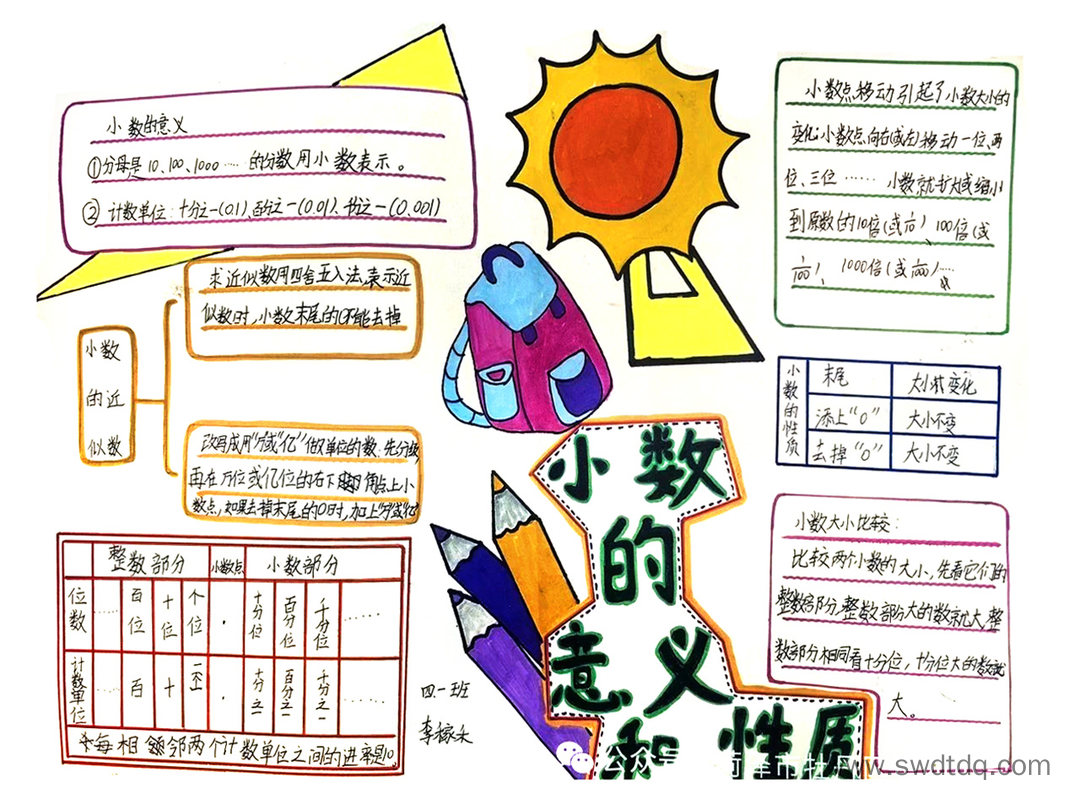 小数的意义
①分母是10、100、1000……的分数用小数表示。
② 计数单位:十分之一(0.1)、百分之一(0.01)、千分之一(0.001)
小数点移动引起了小数大小的
变化:小数点向右(或左)移动一位、两
位、三位……小数就扩大或缩小
到原数的10倍(或1/10)、100倍(或
1/100)、1000倍(或
小数
的近
似数
求近似数用四舍五入法,表示近
似数时,小数末尾的0不能去掉
改写成用"万"或"亿"做单位的数:先分级,
再在万位或亿位的右下角点上小
数点,如果去掉末尾的0时,加上"万"或"亿"
小数的性质
末尾 大小状变化
添上"0" 大小不变
去掉"0" 大小不变
小数
的
意义
和性质
小数大小比较:
比较两个小数的大小,先看它们的
整数部分,整数部分大的数就大,整
数部分相同看十分位,十分位大的数就
大。
整数部分 小数点 小数部分
位数 …… 百位 十位 个位 . 十分位 百分位 千分位 ……
计数单位 …… 百 十 一(个) . 十分之一 百分之一 千分之一 ……
每相邻两个计数单位之间的进率是10。
四一班
公众号
www.swdtdq.com